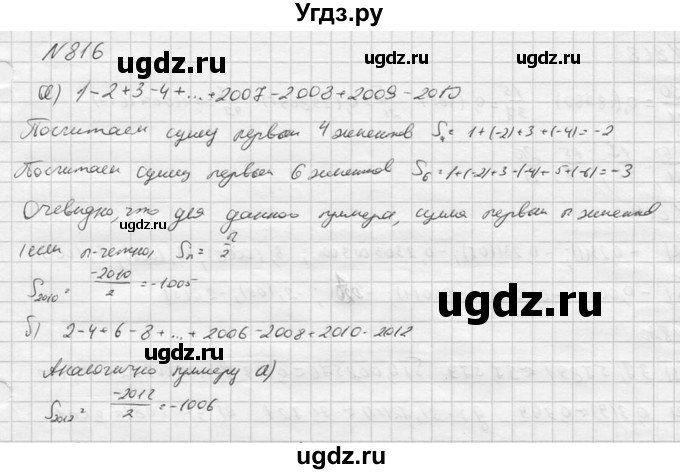 Угдз.ру
N 816
а) 1-2+3-4+...+2007-2008+2009-2010
Посчитаем сумму первых 4 элементов S₄ = 1+(-2)+3+(-4) = -2
Посчитаем сумму первых 6 элементов S₆ = 1+(-2)+3-(-4)+5+(-6) = -3
Очевидно, что для данного примера, сумма первых n элементов
(если n-четно, Sₙ = n/2
S₂₀₁₀ = -2010/2 = -1005
б) 2-4+6-8+...+2006-2008+2010-2012
Аналогично примеру а)
S₂₀₁₂ = -2012/2 = -1006
ugdz.ru
ugdz.ru
ugdz.ru
ugdz.ru
ugdz.ru
ugdz.ru
ugdz.ru
ugdz.ru